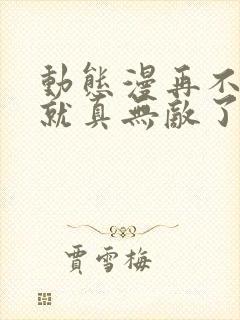 動態漫再不
就真無敵了
賈雪梅